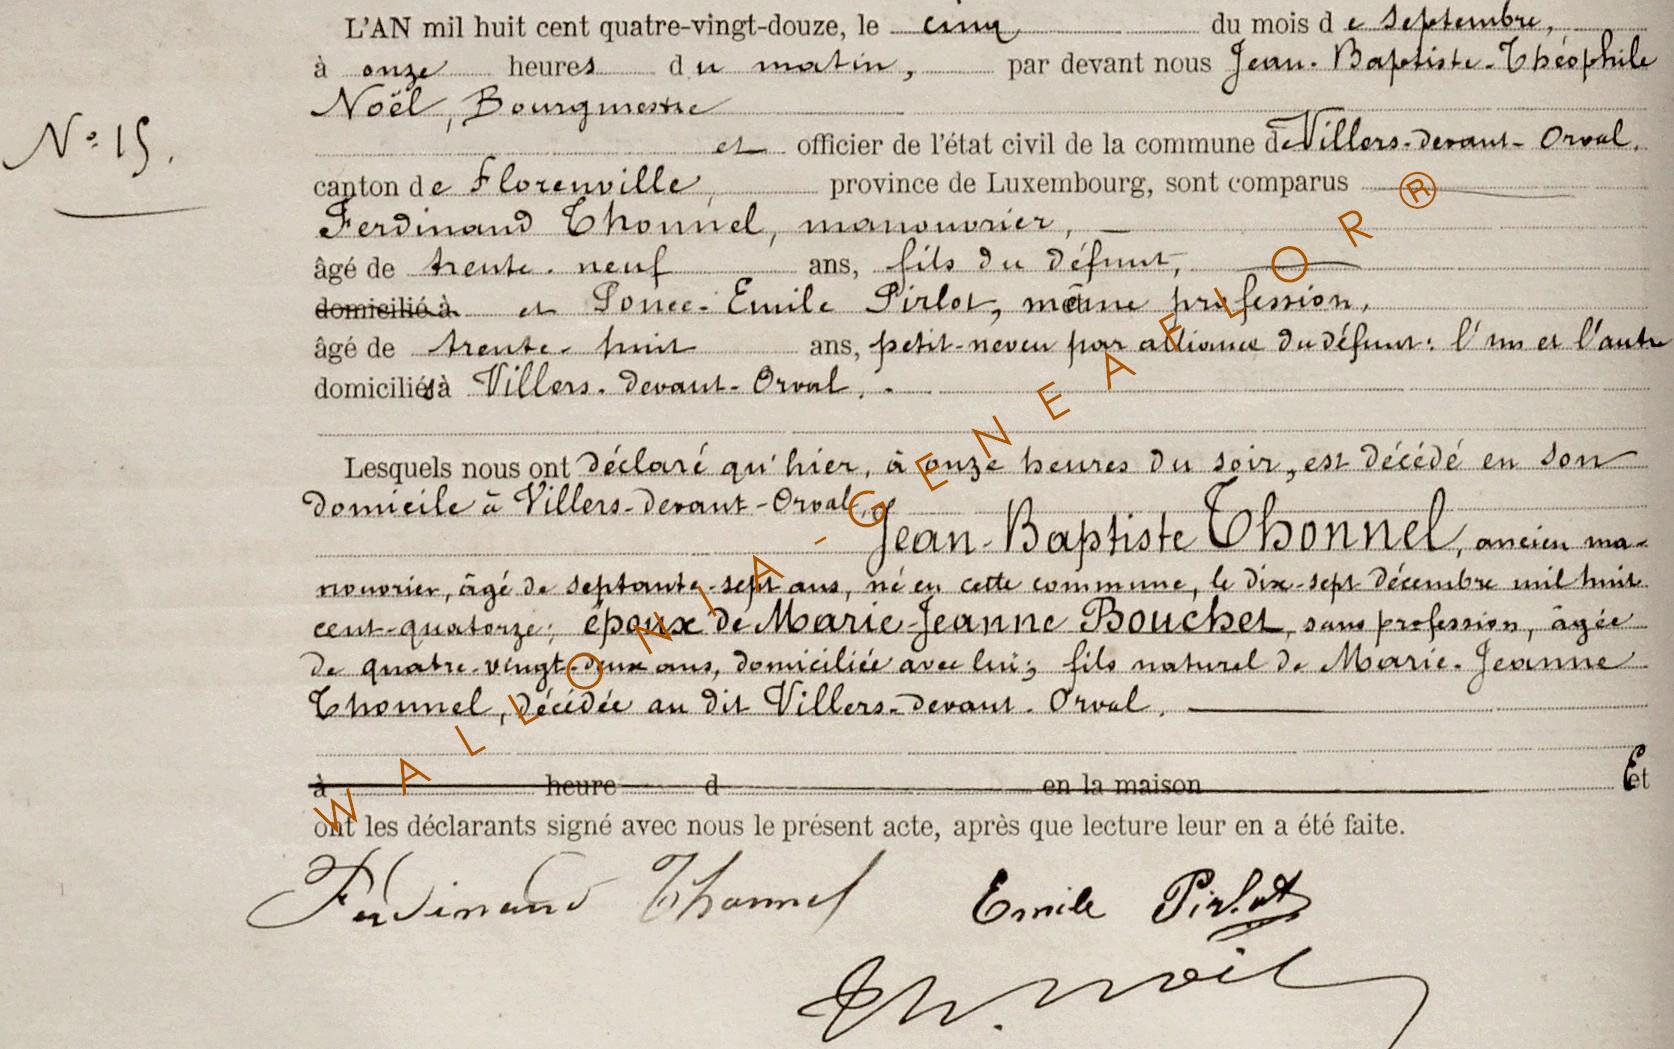 L'AN mil huit cent quatre-vingt-douze, le cinq du mois de septembre,
à onze heures du matin, par devant nous Jean-Baptiste-Théophile
Noël, Bourgmestre
N° 15.
et officier de l'état civil de la commune de Villers-devant-Orval,
canton de Florenville, province de Luxembourg, sont comparus
Ferdinand Thonnel, manouvrier,
âgé de trente-neuf ans, fils du défunt,
domicilié à et Ponce-Emile Pirlot, même profession,
âgé de trente-huit ans, petit-neveu par alliance du défunt: l'un et l'autre
domiciliés à Villers-devant-Orval.
Lesquels nous ont déclaré qu'hier, à onze heures du soir, est décédé en son
domicile à Villers-devant-Orval,
Jean-Baptiste Thonnel, ancien ma-
nouvrier, âgé de septante-sept ans, né en cette commune, le dix-sept décembre mil huit
cent-quatorze; époux de Marie-Jeanne Bouchet, sans profession, âgée
de quatre-vingt-deux ans, domiciliée avec lui; fils naturel de Marie-Jeanne
Thonnel, décédée au dit Villers-devant-Orval.
à heure d en la maison Et
ont les déclarants signé avec nous le présent acte, après que lecture leur en a été faite.
Ferdinand Thonnel Emile Pirlot
Th. Noël
WALLONIA-GENEAFLOR ®